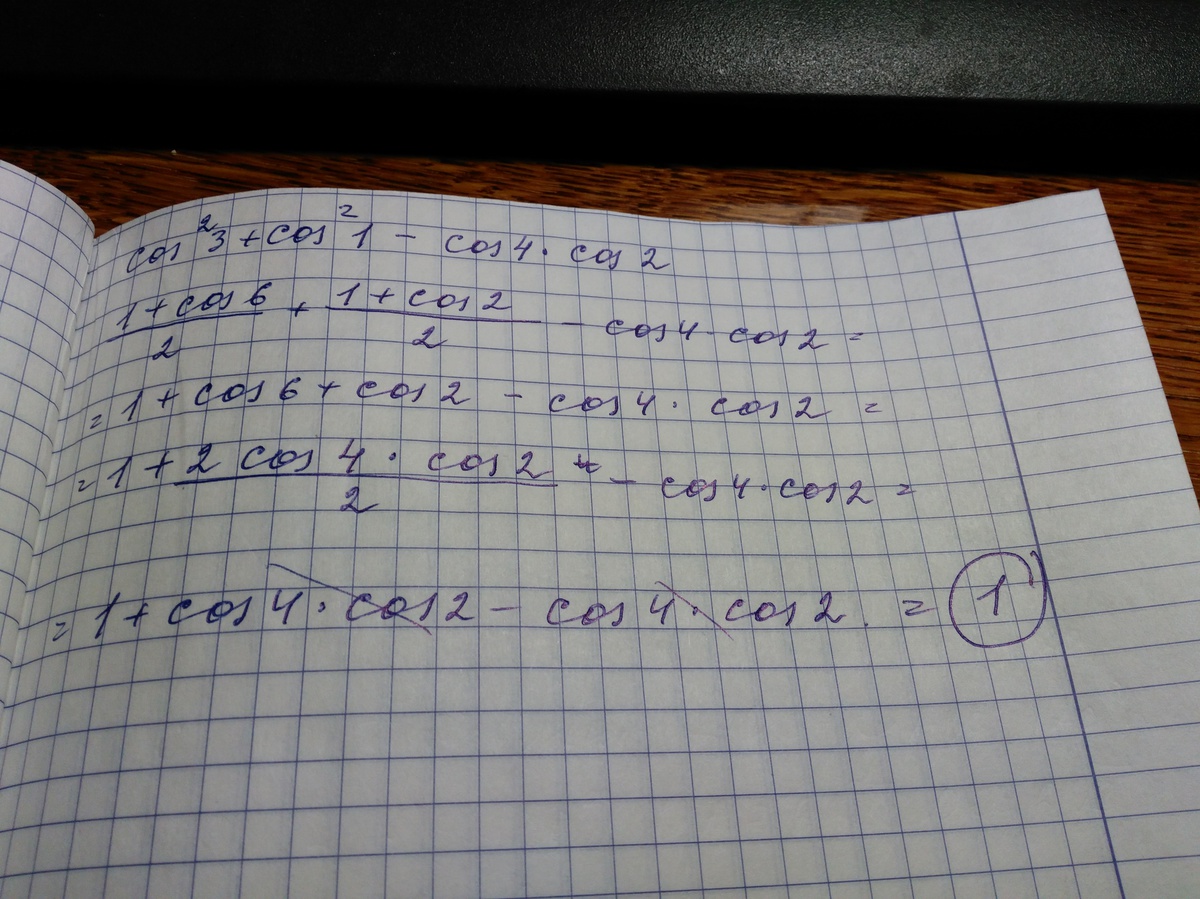 cos²3 + cos²1 - cos4 · cos2
(1 + cos6)/2 + (1 + cos2)/2 - cos4 · cos2 =
= 1 + cos6 + cos2 - cos4 · cos2 =
= 1 + (2 cos4 · cos2)/2 - cos4 · cos2 =
= 1 + cos4 · cos2 - cos4 · cos2 = 1